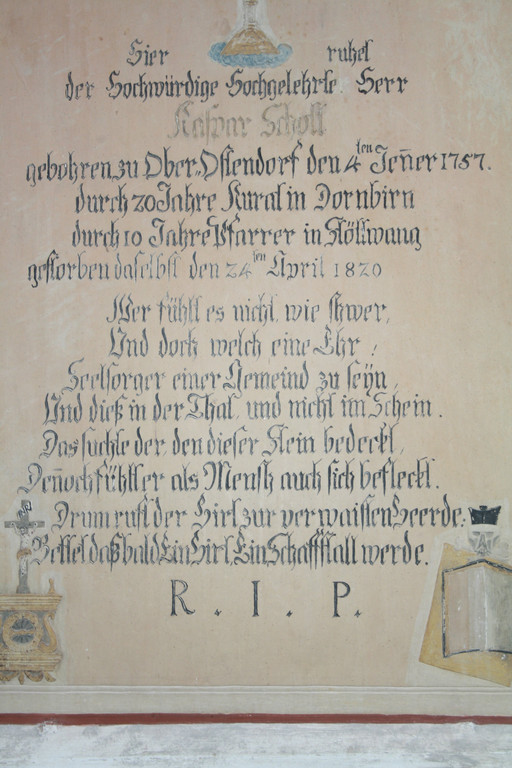 Hier ruhet
der Hochwürdige Hochgelehrte Herr
Kaspar Scholl
gebohren zu Ober-Ostendorf den 4ten Jen̄er 1757.
durch 20 Jahre Kurat in Dornbirn
durch 10 Jahre Pfarrer in Stöttwang
gestorben daselbst den 24ten April 1820
Wer fühlt es nicht, wie schwer,
Und doch welch eine Ehr,
Seelsorger einer Gemeind zu seyn,
Und dieß in der That, und nicht im Schein.
Das suchte der, den dieser Stein bedeckt,
Den̄och fühlt er als Mensch auch sich befleckt.
Drum ruft der Hirt zur verwaisten Heerde:
Bettet daß bald Ein Hirt, Ein Schaffstall werde.
R. I. P.